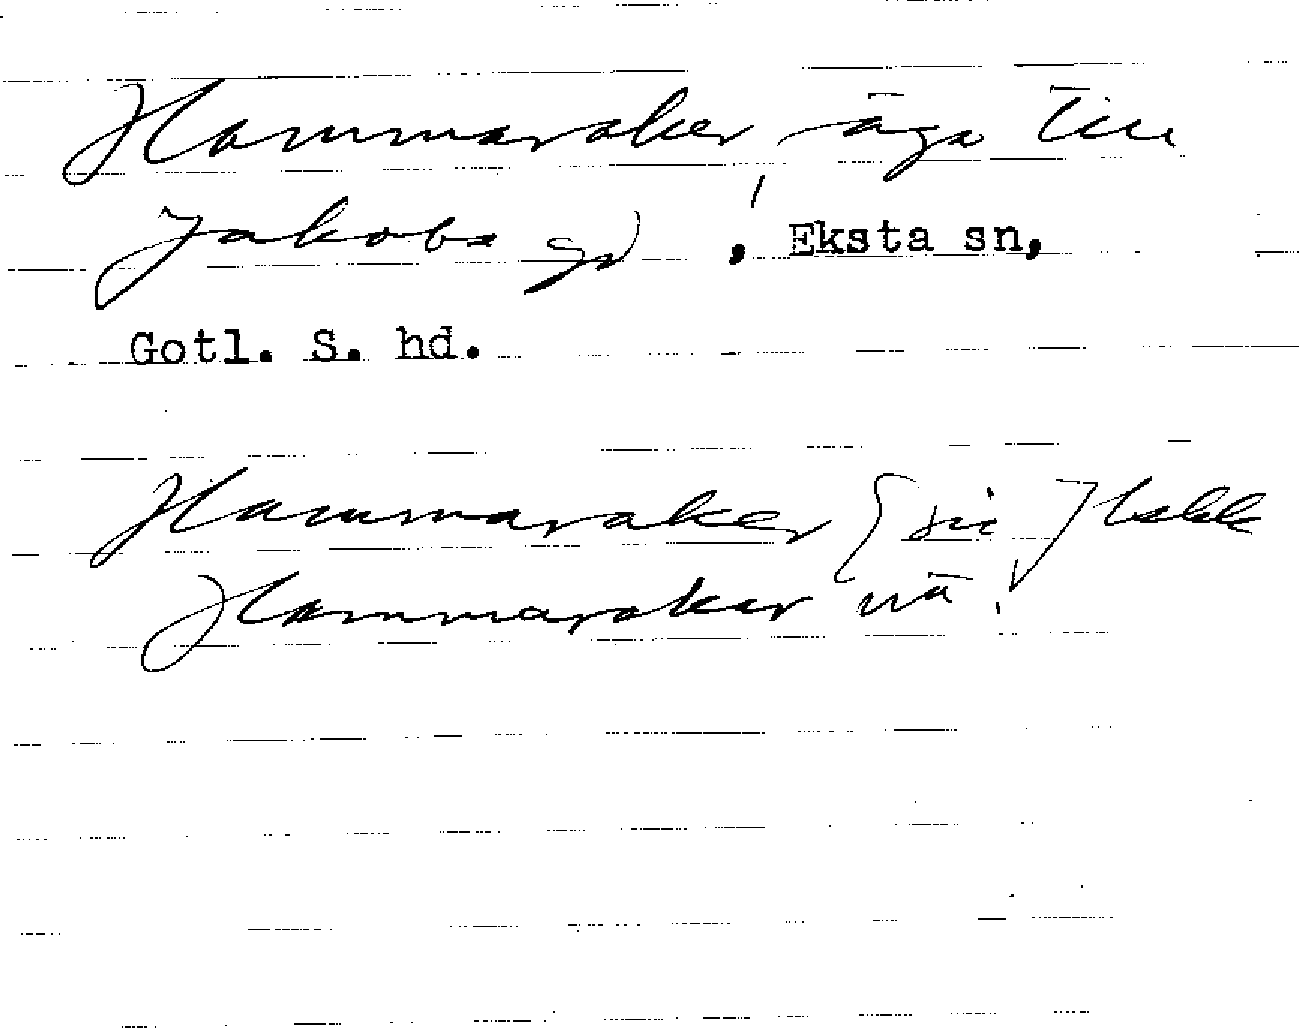 Hammaraker, äga till
Jakobs gd, Eksta sn,
Gotl. S. hd.
Hammaraker [sic]
Hammaraker nä.